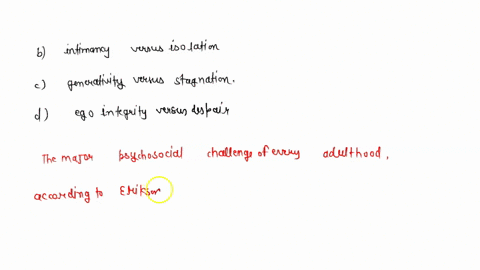 b) intimancy versus isolation
c) generativity versus stagnation.
d) ego integrity versus despair
The major psychosocial challenge of errey adulthood,
according to Erikson